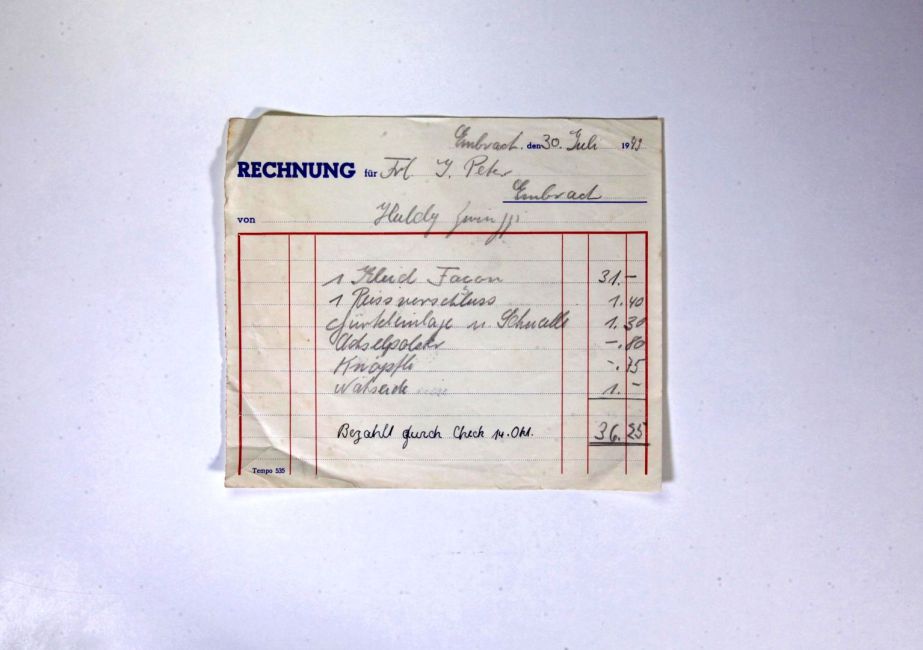 Embrach, den 30. Juli 1943
RECHNUNG für Frl. J. Peter
Embrach
von Huldy
1 Kleid Façon 31.–
1 Reissverschluss 1.40
Gürteleinlage u. Schnalle 1.30
Achselpolster –.80
Knöpfli –.75
Nähseide 1.–
Bezahlt durch Check 14. Okt. 36.25
Tempo 535